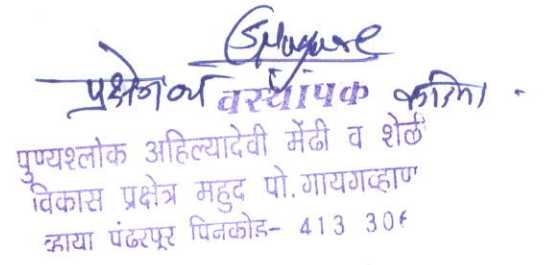 प्रक्षेत्र व्यवस्थापक करिता
पुण्यश्लोक अहिल्यादेवी मेंढी व शेळी
विकास प्रक्षेत्र महुद पो.गायगव्हाण
व्हाया पंढरपूर पिनकोड- 413 306